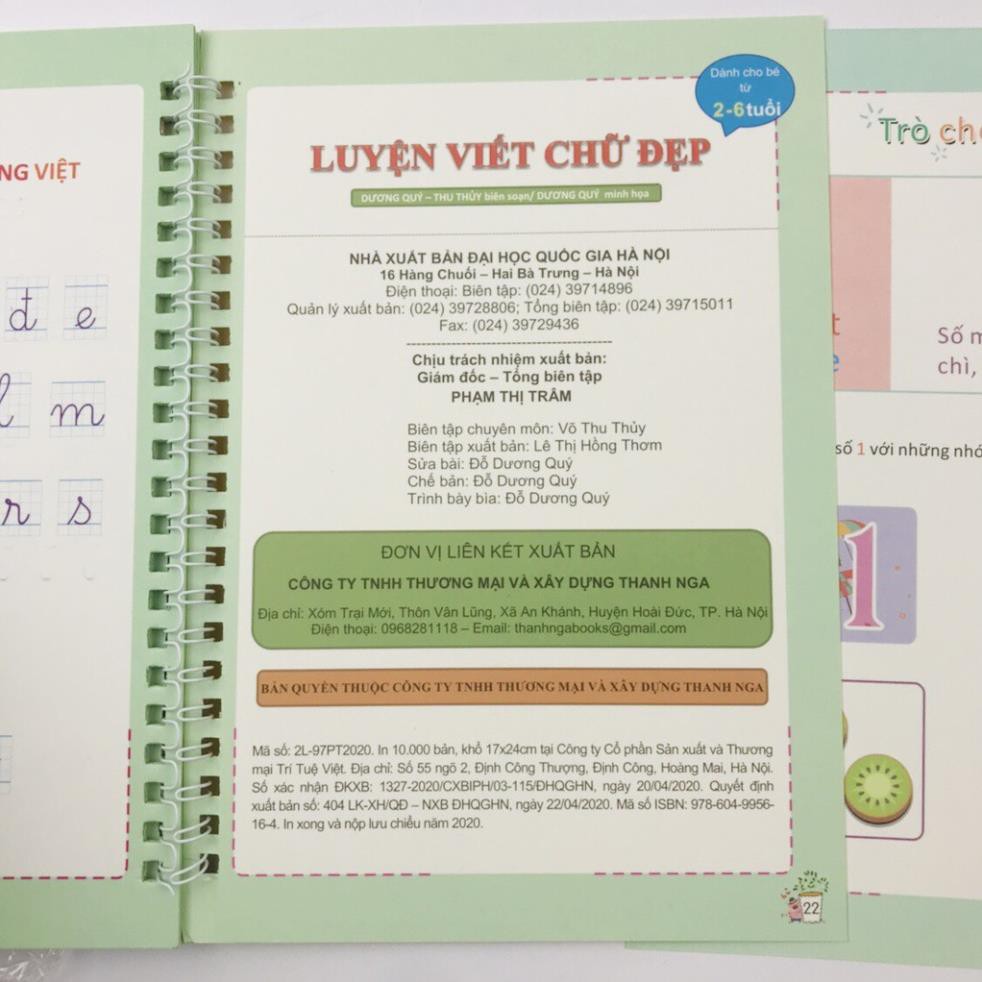 NG VIỆT
đ e
l m
r s
Dành cho bé
từ
2-6 tuổi
LUYỆN VIẾT CHỮ ĐẸP
DƯƠNG QUÝ – THU THỦY biên soạn/ DƯƠNG QUÝ minh họa
NHÀ XUẤT BẢN ĐẠI HỌC QUỐC GIA HÀ NỘI
16 Hàng Chuối – Hai Bà Trưng – Hà Nội
Điện thoại: Biên tập: (024) 39714896
Quản lý xuất bản: (024) 39728806; Tổng biên tập: (024) 39715011
Fax: (024) 39729436
Chịu trách nhiệm xuất bản:
Giám đốc – Tổng biên tập
PHẠM THỊ TRÂM
Biên tập chuyên môn: Võ Thu Thủy
Biên tập xuất bản: Lê Thị Hồng Thơm
Sửa bài: Đỗ Dương Quý
Chế bản: Đỗ Dương Quý
Trình bày bìa: Đỗ Dương Quý
ĐƠN VỊ LIÊN KẾT XUẤT BẢN
CÔNG TY TNHH THƯƠNG MẠI VÀ XÂY DỰNG THANH NGA
Địa chỉ: Xóm Trại Mới, Thôn Vân Lũng, Xã An Khánh, Huyện Hoài Đức, TP. Hà Nội
Điện thoại: 0968281118 – Email: thanhngabooks@gmail.com
BẢN QUYỀN THUỘC CÔNG TY TNHH THƯƠNG MẠI VÀ XÂY DỰNG THANH NGA
Mã số: 2L-97PT2020. In 10.000 bản, khổ 17x24cm tại Công ty Cổ phần Sản xuất và Thương
mại Trí Tuệ Việt. Địa chỉ: Số 55 ngõ 2, Định Công Thượng, Định Công, Hoàng Mai, Hà Nội.
Số xác nhận ĐKXB: 1327-2020/CXBIPH/03-115/ĐHQGHN, ngày 20/04/2020. Quyết định
xuất bản số: 404 LK-XH/QĐ – NXB ĐHQGHN, ngày 22/04/2020. Mã số ISBN: 978-604-9956-
16-4. In xong và nộp lưu chiểu năm 2020.
22
Trò ch
Số m
chì,
số 1 với những nhó
1